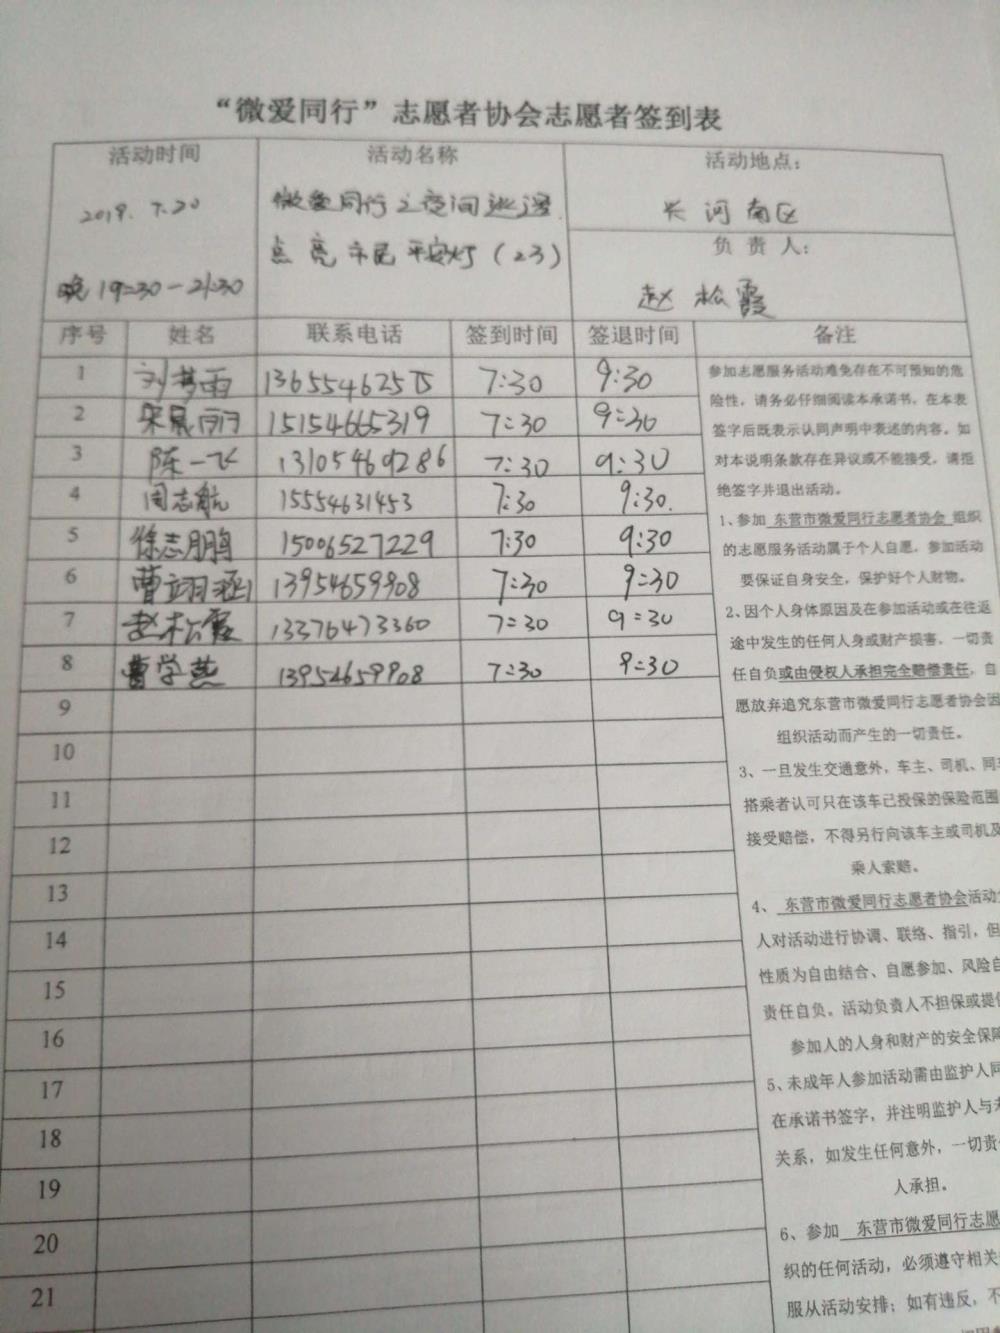 “微爱同行”志愿者协会志愿者签到表
活动时间
2019. 7.20
晚19:30-21:30
活动名称
微爱同行之夜间巡逻
点亮市民平安灯(23)
活动地点:
长河南区
负责人:
赵松霞
序号 姓名 联系电话 签到时间 签退时间 备注
1 刘梦雨 7:30 9:30
2 15154665319 7:30 9:30
3 陈一飞 13105469286 7:30 9:30
4 周志航 15554631453 7:30 9:30.
5 徐志鹏 15006527229 7:30 9:30
6 曹翊涵 13954659908 7:30 9:30
7 赵松霞 13376473360 7:30 9:30
8 曹学燕 13954659908 7:30 9:30
9
10
11
12
13
14
15
16
17
18
19
20
21
参加志愿服务活动难免存在不可预知的危
险性,请务必仔细阅读本承诺书。在本表
签字后既表示认同声明中表述的内容。如
对本说明条款存在异议或不能接受,请拒
绝签字并退出活动。
1、参加 东营市微爱同行志愿者协会 组织
的志愿服务活动属于个人自愿,参加活动
要保证自身安全,保护好个人财物。
2、因个人身体原因及在参加活动或在往返
途中发生的任何人身或财产损害,一切责
任自负或由侵权人承担完全赔偿责任,自
愿放弃追究东营市微爱同行志愿者协会因
组织活动而产生的一切责任。
3、一旦发生交通意外,车主、司机、同车
搭乘者认可只在该车已投保的保险范围
接受赔偿,不得另行向该车主或司机及
乘人索赔。
4、 东营市微爱同行志愿者协会活动
人对活动进行协调、联络、指引,但
性质为自由结合、自愿参加、风险自
责任自负。活动负责人不担保或提供
参加人的人身和财产的安全保障
5、未成年人参加活动需由监护人同
在承诺书签字,并注明监护人与未
关系,如发生任何意外,一切责任
人承担。
6、参加 东营市微爱同行志愿
织的任何活动,必须遵守相关
服从活动安排;如有违反,不